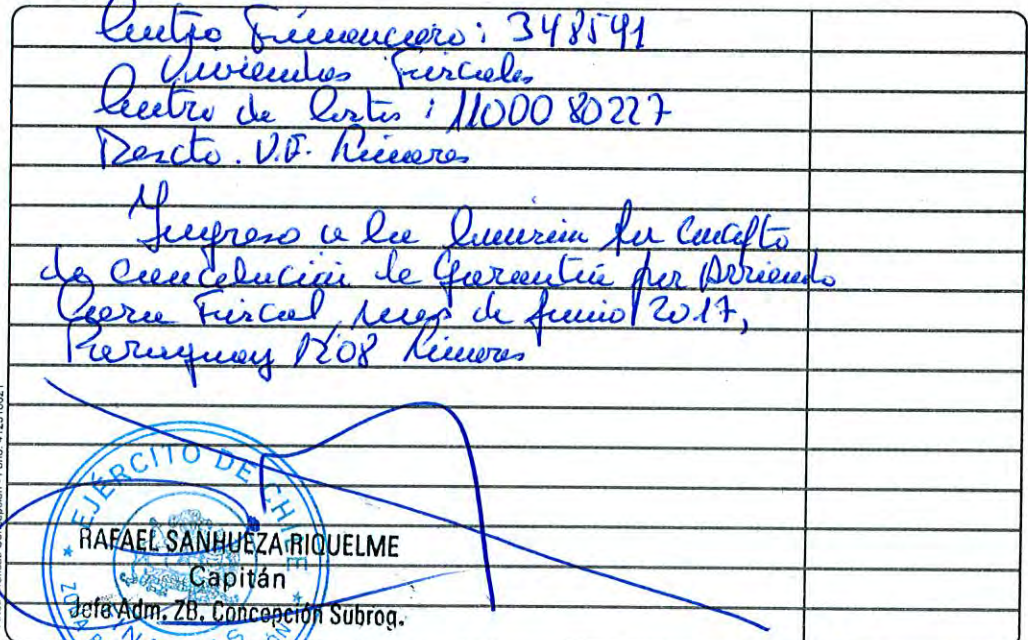 Centro Financiero: 348591
Viviendas Fiscales
Centro de Costo: 1100080227
Descto. V.F. Linares
Ingreso a la Comisión por Concepto
de cancelación de Garantía por Arriendo
Casa Fiscal, mes de junio 2017,
Paraguay 1208 Linares
EJÉRCITO DE CHILE
RAFAEL SANHUEZA RIQUELME
Capitán
Jefe Adm. ZB. Concepción Subrog.